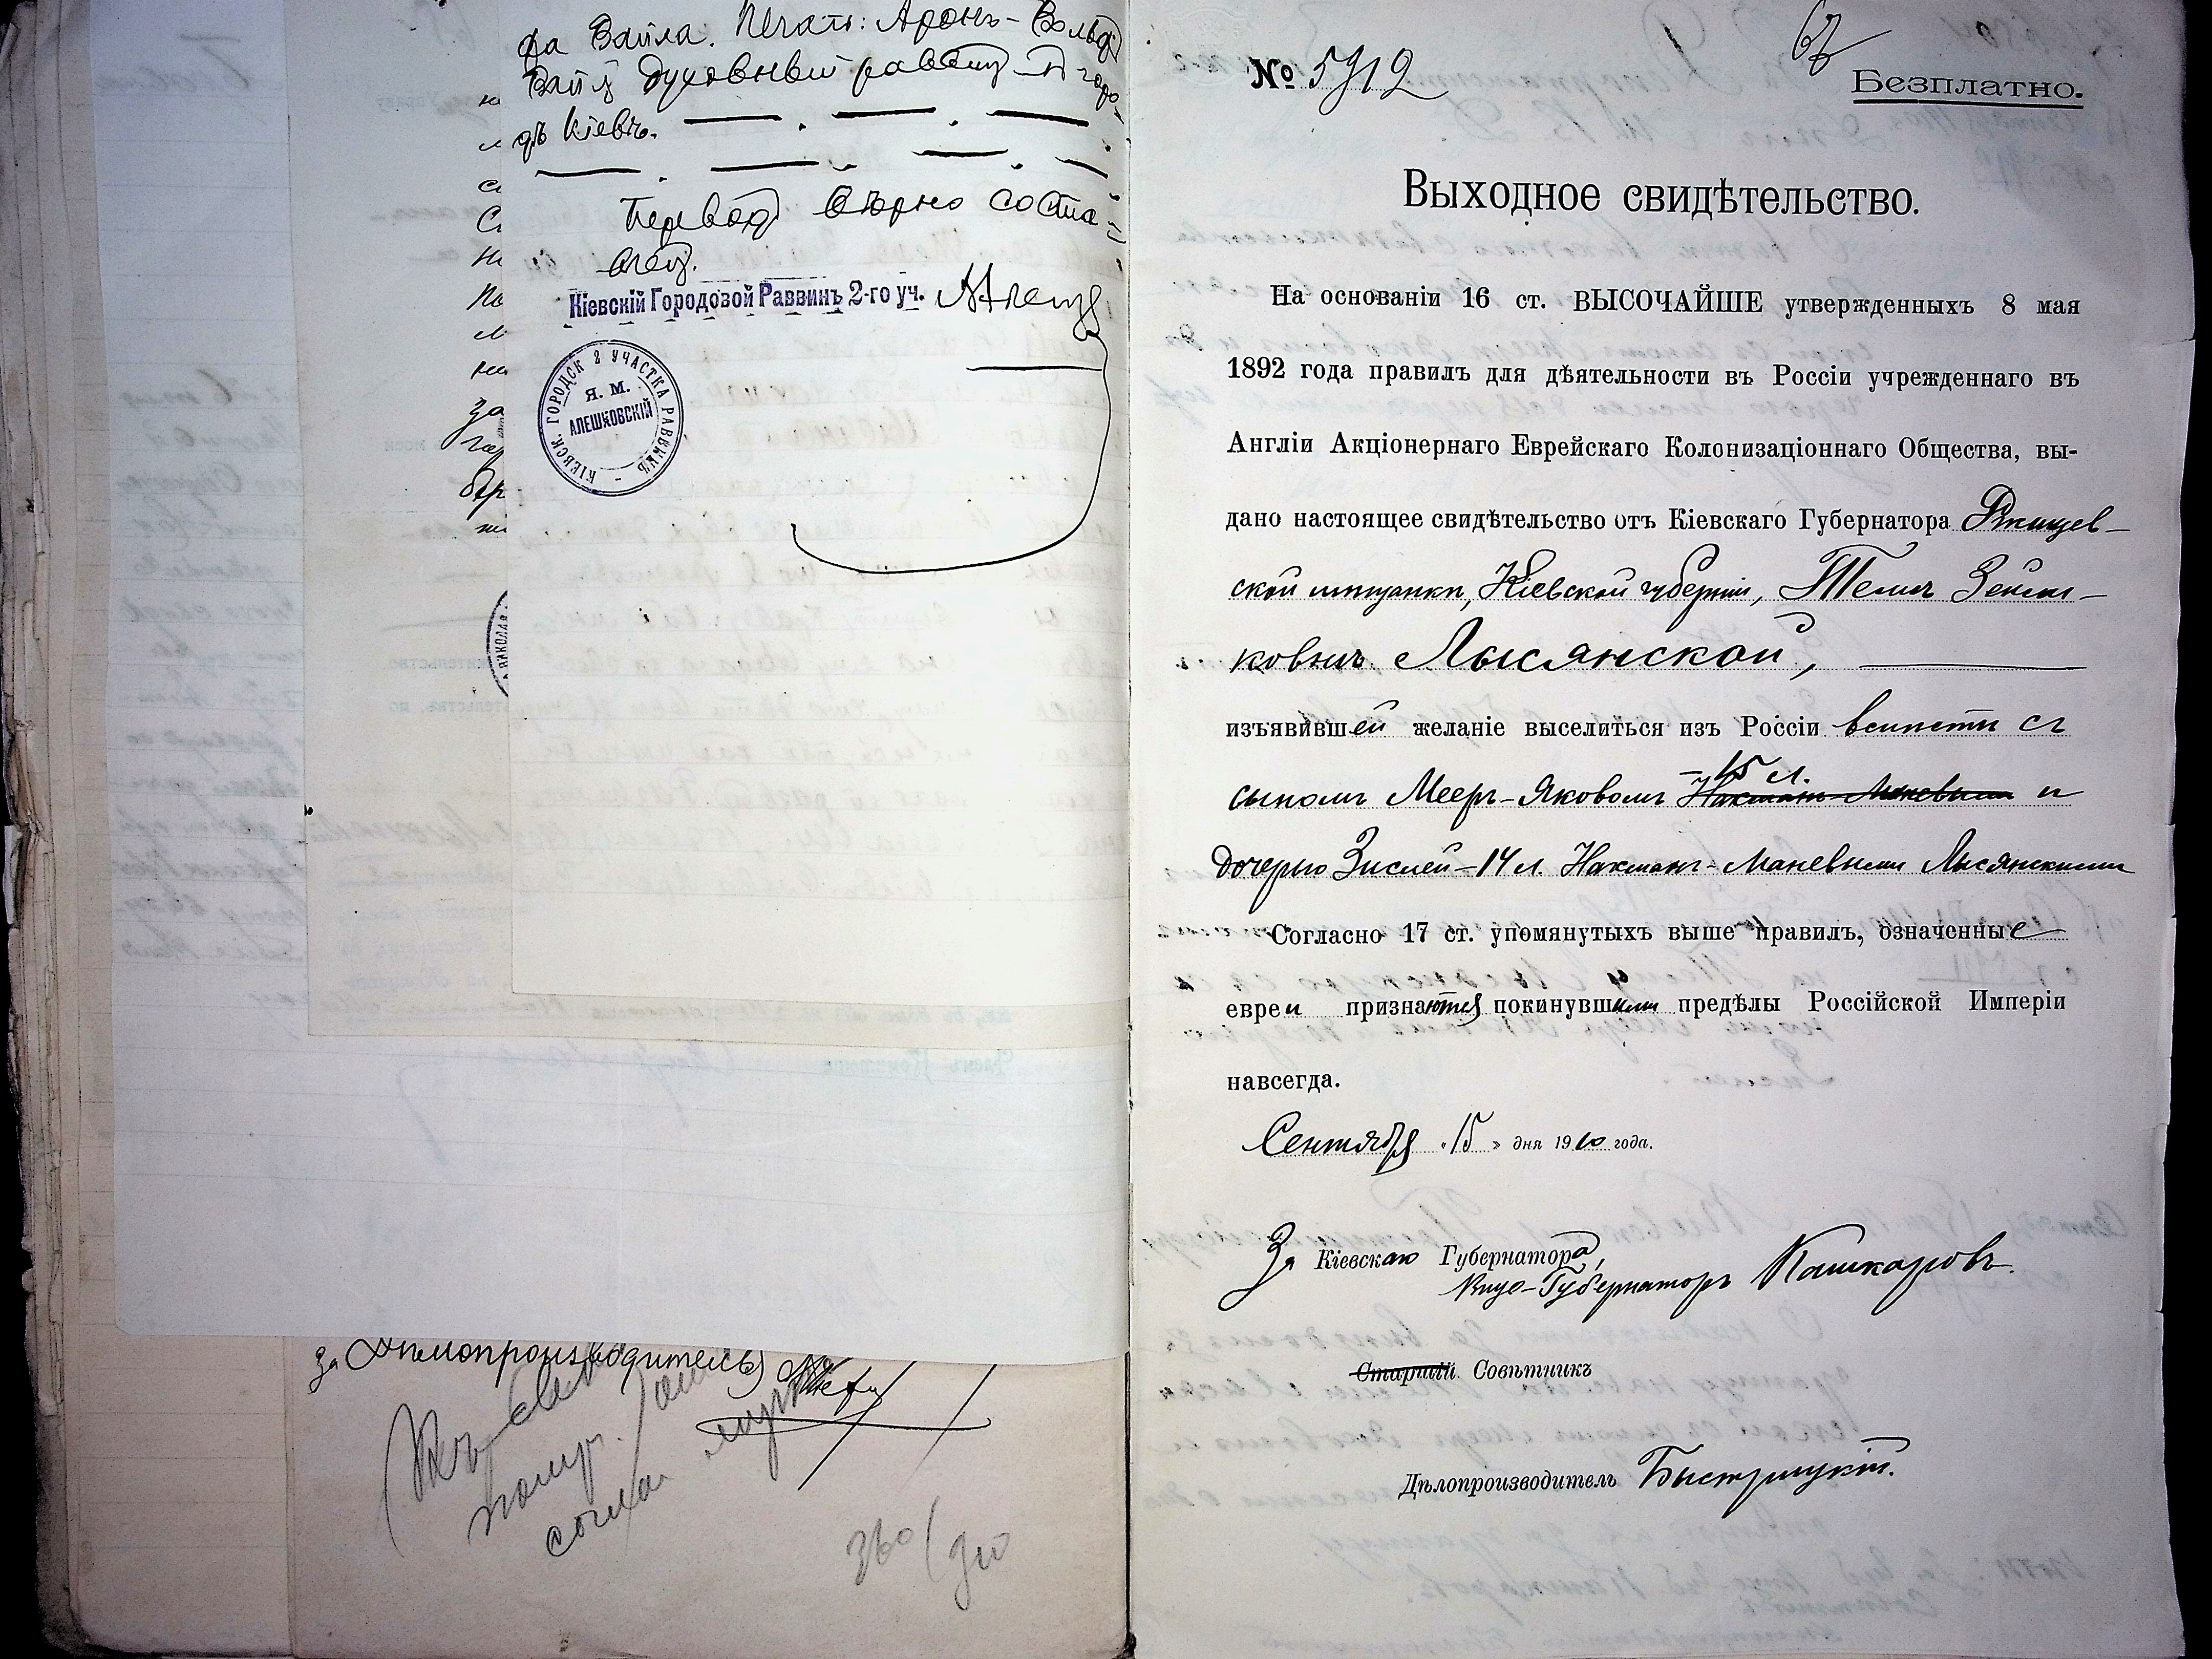 фа Вайла. Печать: Аронъ-Вольфъ
Вайль духовный раввинъ въ горо-
дѣ Кіевѣ.
Переводъ вѣрно соста-
влен.
Кіевскій Городовой Раввинъ 2-го уч.
КІЕВСК. ГОРОДСК 2 УЧАСТКА РАВВИНЪ
Я. М.
АЛЕШКОВСКІЙ
за
за Дѣлопроизводитель
согла
360/910
№ 5912
67
Безплатно.
Выходное свидѣтельство.
На основаніи 16 ст. ВЫСОЧАЙШЕ утвержденныхъ 8 мая
1892 года правилъ для дѣятельности въ Россіи учрежденнаго въ
Англіи Акціонернаго Еврейскаго Колонизаціоннаго Общества, вы-
дано настоящее свидѣтельство отъ Кіевскаго Губернатора Ржищев-
ской мѣщанкѣ, Кіевской губерніи, Темѣ Зейли-
ковнѣ Лысянской,
изъявившей желаніе выселиться изъ Россіи вмѣстѣ съ
15 л.
сыномъ Мееръ-Яковомъ Нахманъ-Маневымъ и
дочерью Зислей-14 л. Нахманъ-Маневыми Лысянскими
Согласно 17 ст. упомянутыхъ выше правилъ, означенные
евреи признаются покинувшими предѣлы Россійской Имперіи
навсегда.
Сентября „15" дня 1910 года.
За Кіевскаго Губернатора,
Вице-Губернаторъ Кашкаровъ.
Старшій Совѣтникъ
Дѣлопроизводитель Быстрицкій.